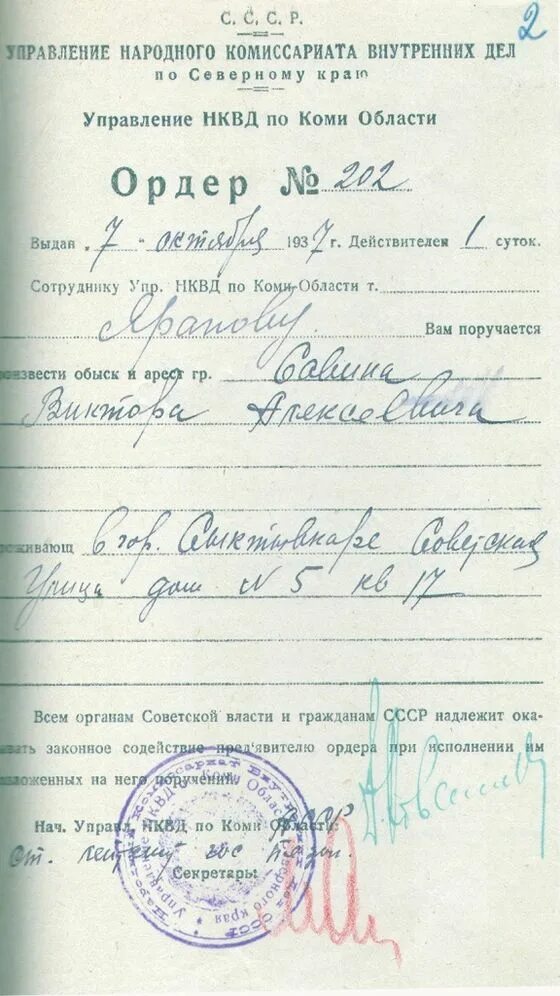 2
С. С. С. Р.
УПРАВЛЕНИЕ НАРОДНОГО КОМИССАРИАТА ВНУТРЕННИХ ДЕЛ
по Северному краю
Управление НКВД по Коми Области
Ордер № 202
Выдан „7“ октября 1937 г. Действителен 1 суток.
Сотруднику Упр. НКВД по Коми-Области т.
Ярапову Вам поручается
произвести обыск и арест гр. Савина
Виктора Алексеевича
проживающ в гор. Сыктывкаре Советская
Улица дом N 5 кв 17
Всем органам Советской власти и гражданам СССР надлежит ока-
зывать законное содействие пред'явителю ордера при исполнении им
возложенных на него поручений.
Нач. Управл. НКВД по Коми Области:
Ст. лейтенант гос
Секретарь:
Народный Комиссариат Внутренних Дел СССР
Управление НКВД по Коми Области Северного края